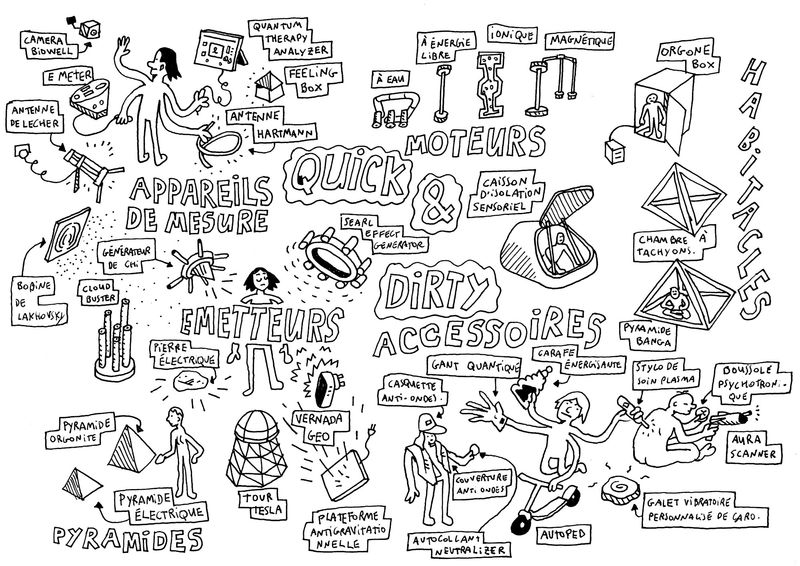 CAMERA
BIOWELL
E METER
ANTENNE
DE LECHER
QUANTUM
THERAPY
ANALYZER
FEELING
BOX
ANTENNE
HARTMANN
APPAREILS
DE MESURE
BOBINE
DE
LAKHOVSKY
À EAU
À ÉNERGIE
LIBRE
IONIQUE
MAGNÉTIQUE
MOTEURS
QUICK
&
DIRTY
ORGONE
BOX
HABITACLES
CAISSON
D'ISOLATION
SENSORIEL
CHAMBRE À
TACHYONS.
PYRAMIDE
BANGA
GÉNÉRATEUR
DE CHI
SEARL
EFFECT
GENERATOR
CLOUD
BUSTER
EMETTEURS
PIERRE
ÉLECTRIQUE
VERNADA
GEO
TOUR
TESLA
PLATEFORME
ANTIGRAVITATIO
NNELLE
PYRAMIDE
ORGONITE
PYRAMIDE
ÉLECTRIQUE
PYRAMIDES
ACCESSOIRES
CASQUETTE
ANTI-ONDES.
GANT QUANTIQUE
CARAFE
ÉNERGISANTE
STYLO DE
SOIN PLASMA
BOUSSOLE
PSYCHOTRONI-
QUE
AURA
SCANNER
COUVERTURE
ANTI.ONDES
AUTOCOLLANT
NEUTRALIZER
AUTOPED
GALET VIBRATOIRE
PERSONNALISÉ DE CARO.